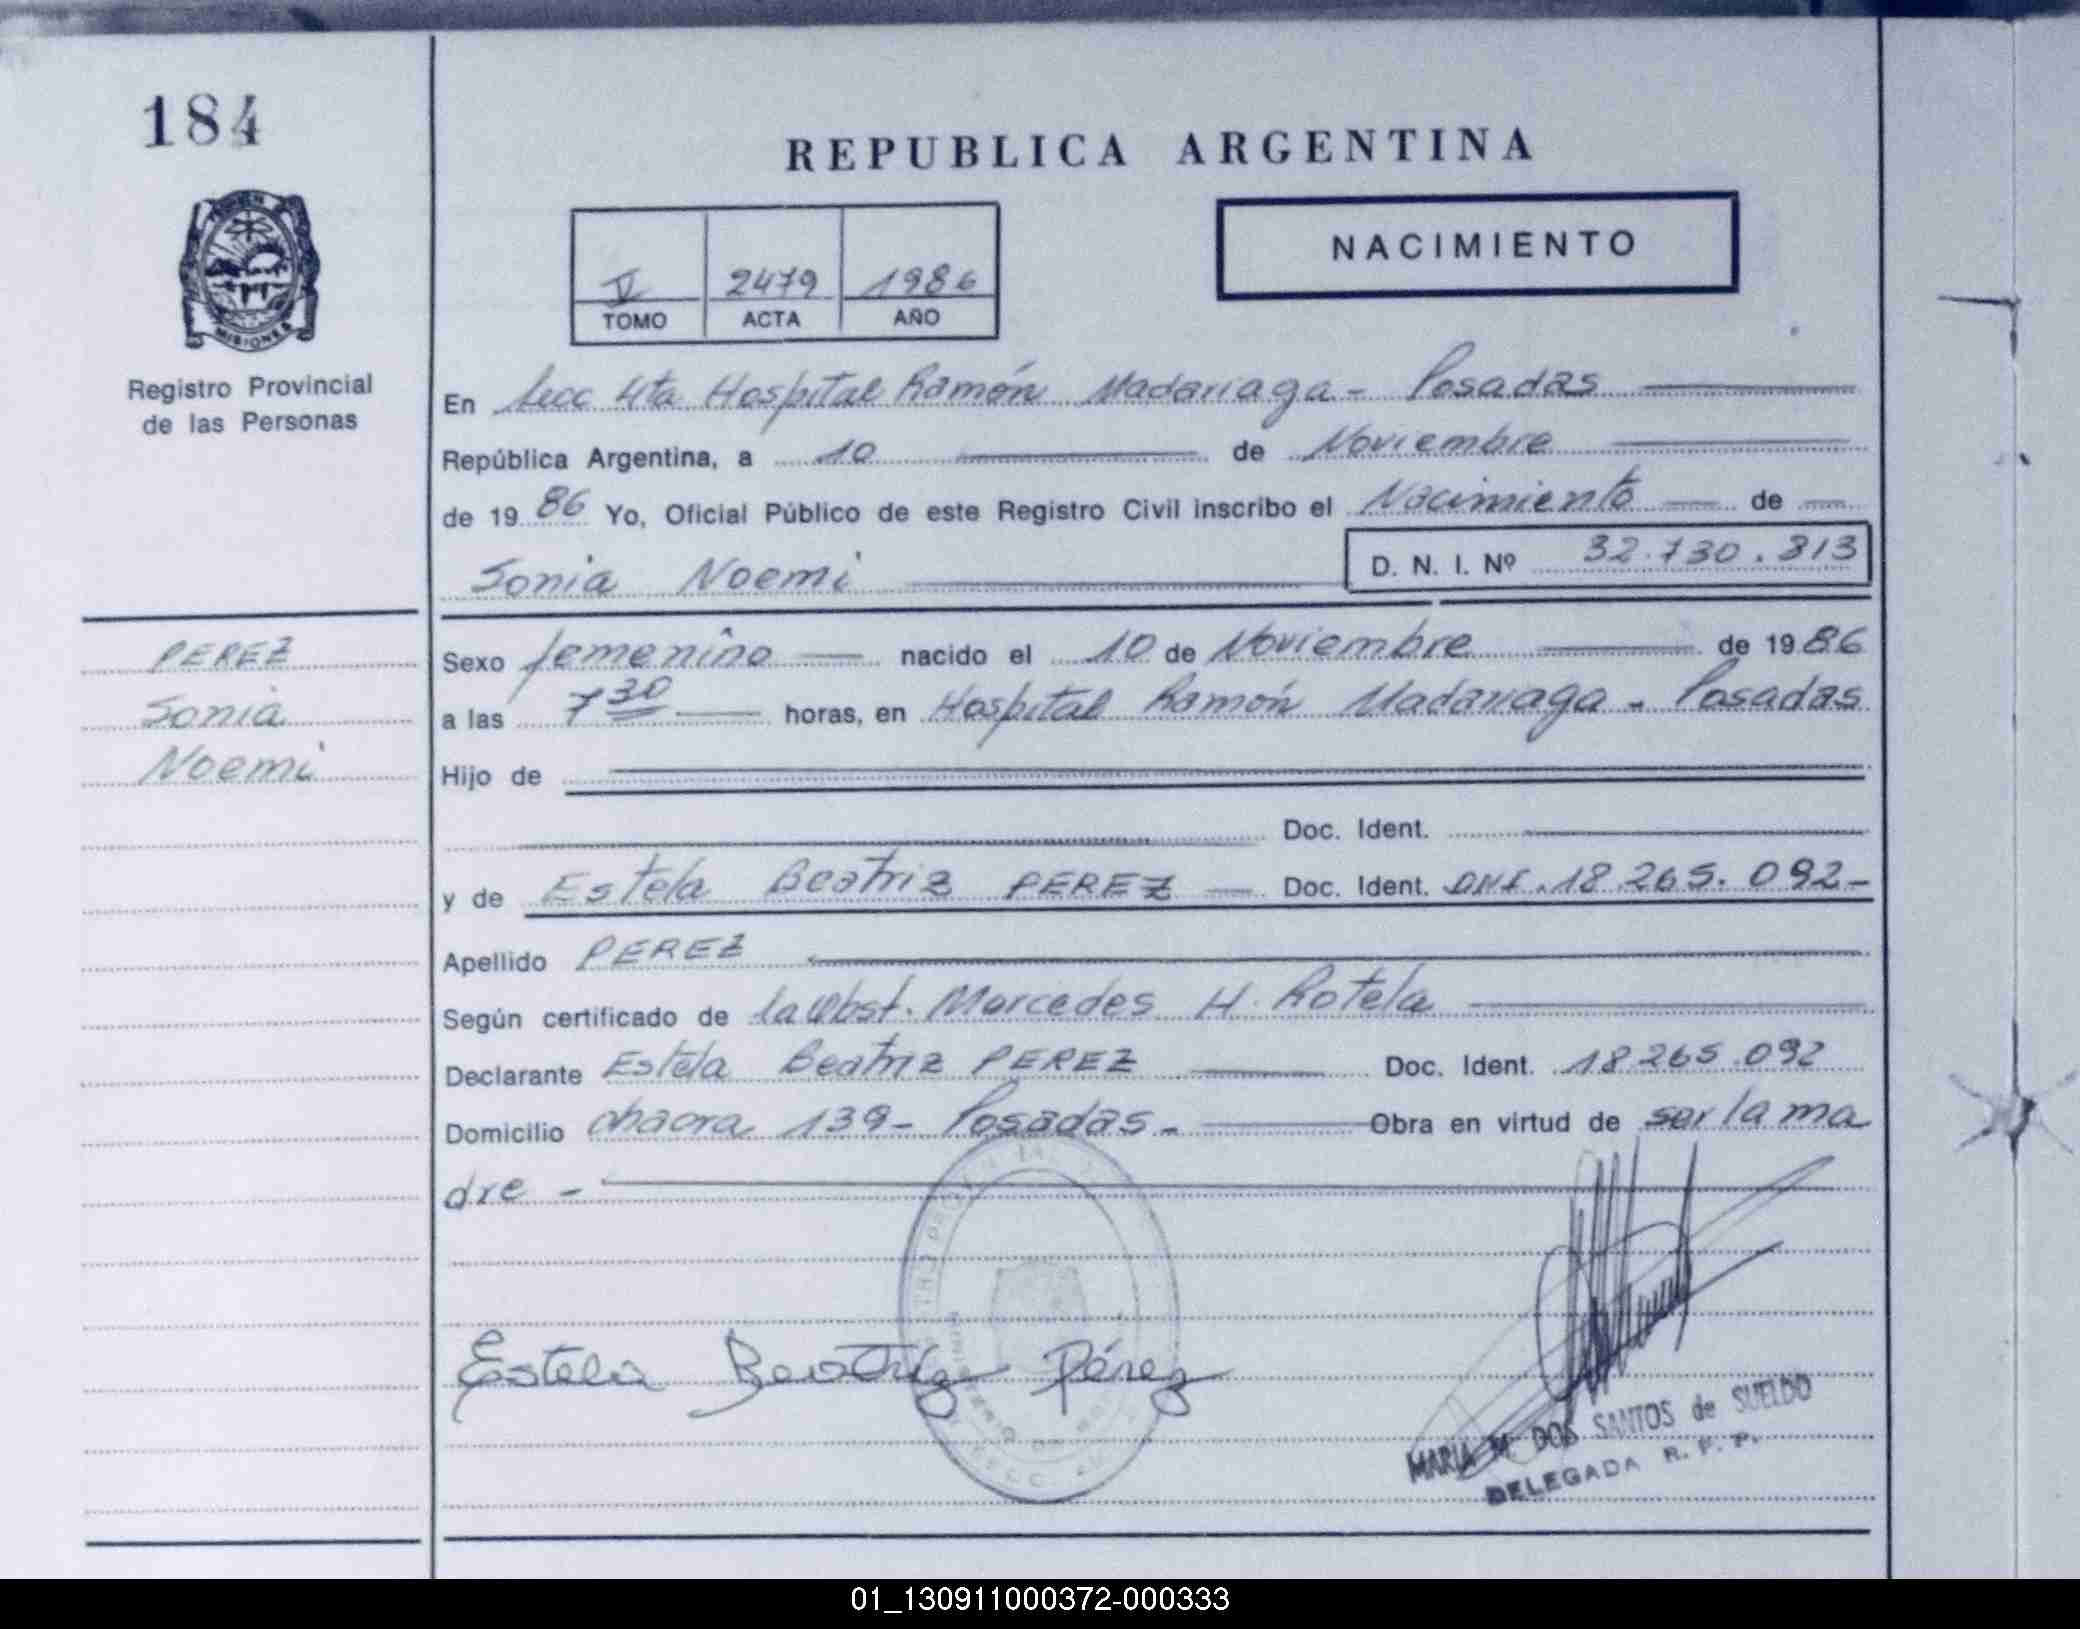 184
REPUBLICA ARGENTINA
NACIMIENTO
V 2479 1986
TOMO ACTA AÑO
MISIONES
Registro Provincial
de las Personas
En Secc 4ta Hospital Ramón Madariaga - Posadas
República Argentina, a 10 de Noviembre
de 1986 Yo, Oficial Público de este Registro Civil inscribo el Nacimiento de
Sonia Noemi D. N. I. Nº 32.730.313
PEREZ
Sonia
Noemi
Sexo femenino nacido el 10 de Noviembre de 1986
a las 7 30 horas, en Hospital Ramón Madariaga - Posadas
Hijo de
Doc. Ident.
y de Estela Beatriz PEREZ Doc. Ident. DNI. 18.265.092-
Apellido PEREZ
Según certificado de la Obst. Marcedes H. Rotela
Declarante Estela Beatriz PEREZ Doc. Ident. 18.265.092
Domicilio chacra 139- Posadas- Obra en virtud de ser la ma
dre -
Estela Beatriz Pérez
MARIA M. DOS SANTOS de SUELDO
DELEGADA R. P. P.
01_130911000372-000333